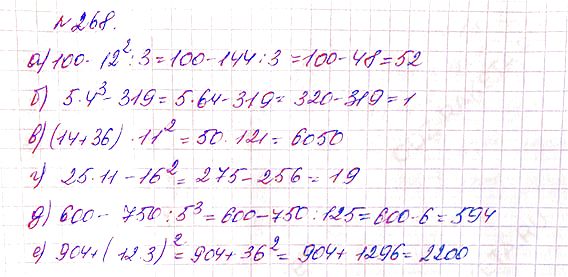 №268.
а) 100 - 12² : 3 = 100 - 144 : 3 = 100 - 48 = 52
б) 5 · 4³ - 319 = 5 · 64 - 319 = 320 - 319 = 1
в) (14 + 36) · 11² = 50 · 121 = 6050
г) 25 · 11 - 16² = 275 - 256 = 19
д) 600 - 750 : 5³ = 600 - 750 : 125 = 600 - 6 = 594
е) 904 + (12·3)² = 904 + 36² = 904 + 1296 = 2200